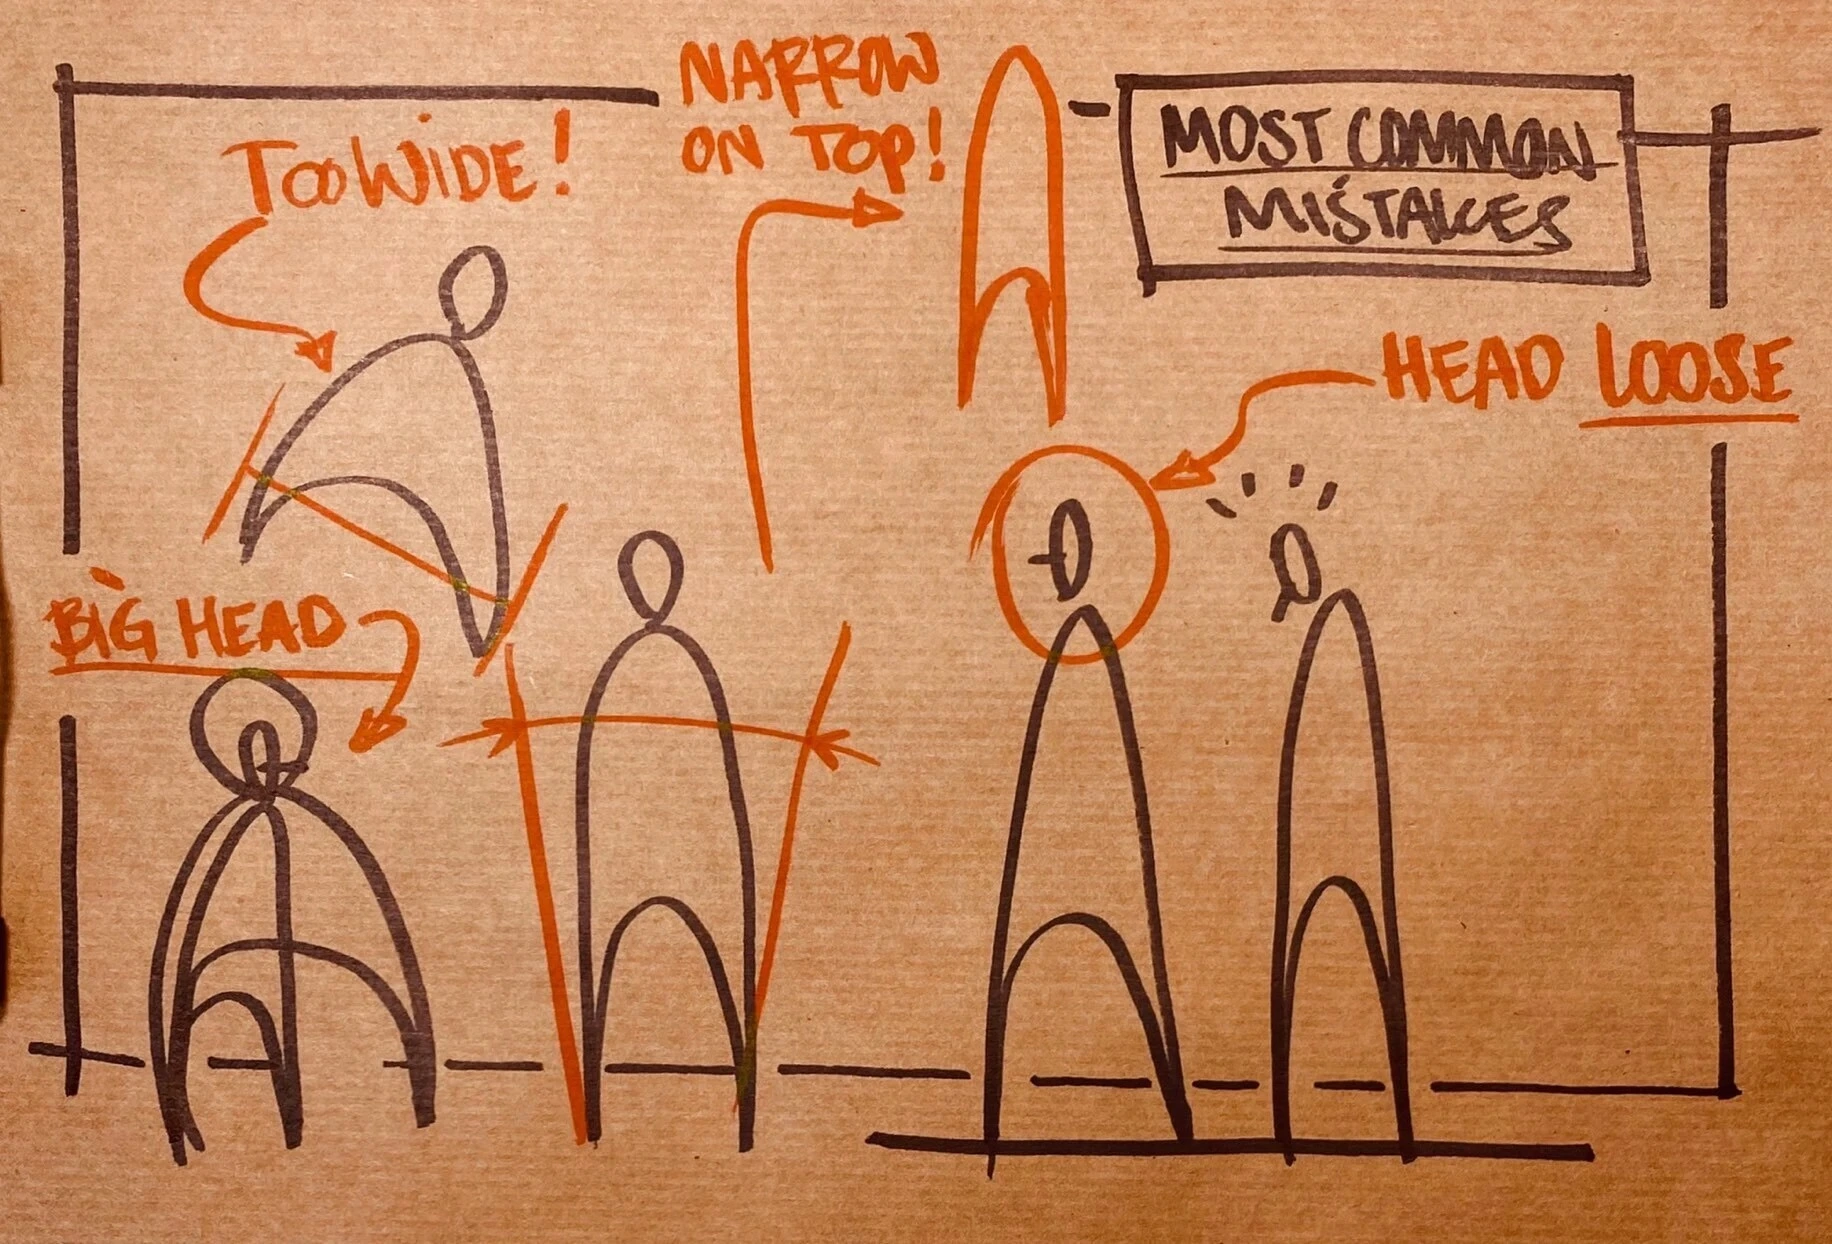 TOO WIDE!
NARROW
ON TOP!
MOST COMMON
MISTAKES
HEAD LOOSE
BIG HEAD